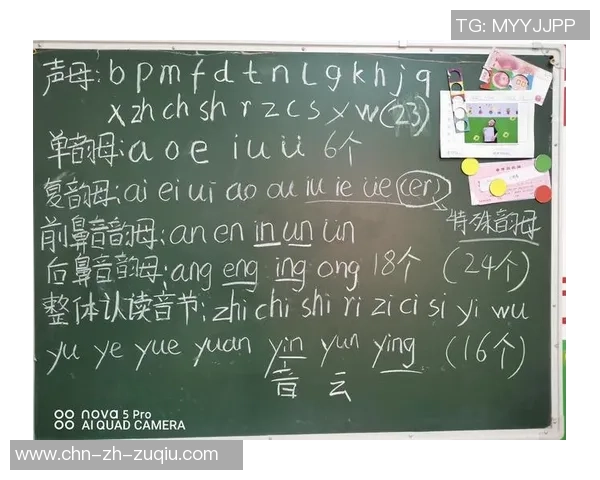 TG: MYYJJPP
声母: b p m f d t n l g k h j q
x zh ch sh r z c s y w (23)
单韵母: a o e i u ü 6个
复韵母: ai ei ui ao ou iu ie üe (er)
特殊韵母
前鼻音韵母: an en in un ün
后鼻音韵母: ang eng ing ong 18个 (24个)
整体认读音节: zhi chi shi ri zi ci si yi wu
yu ye yue yuan yin yun ying (16个)
音 云
nova 5 Pro
AI QUAD CAMERA
www.chn-zh-zuqiu.com